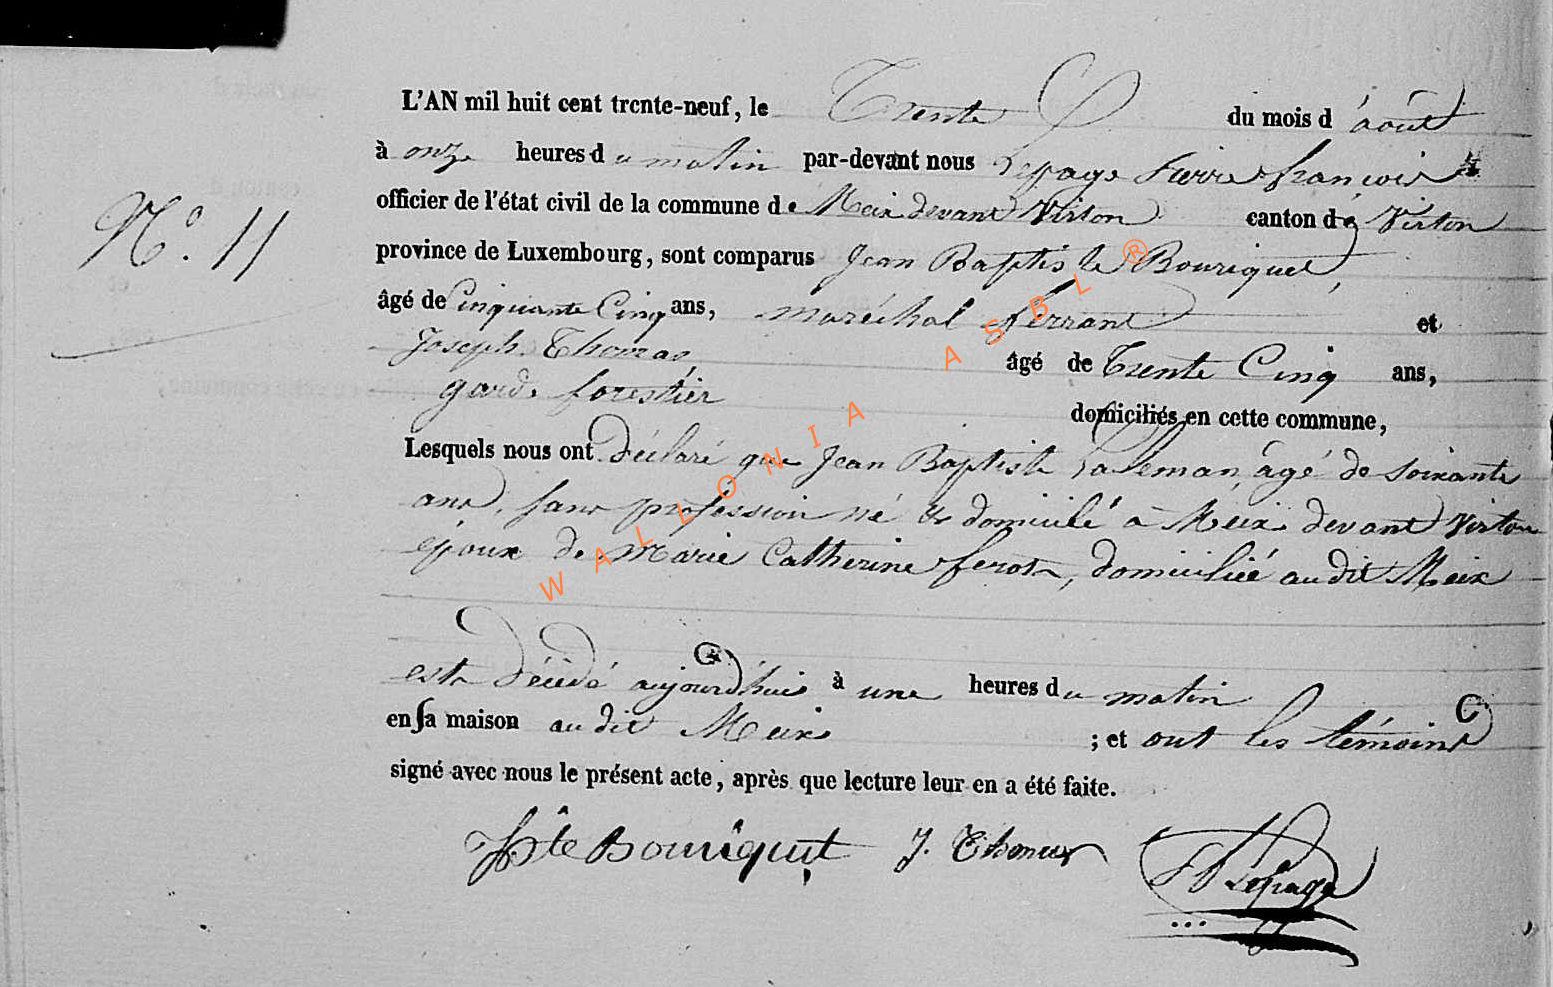 L'AN mil huit cent trente-neuf, le Trente du mois d'août
à onze heures du matin par-devant nous Lepage Pierre françois
officier de l'état civil de la commune de Meix devant Virton canton de Virton
province de Luxembourg, sont comparus Jean Baptiste Bouriquet,
âgé de Cinquante Cinq ans, maréchal ferrant et
Joseph Thomas, âgé de Trente Cinq ans,
garde forestier domiciliés en cette commune,
N° 11
Lesquels nous ont déclaré que Jean Baptiste âgé de soixante
ans, sans profession né & domicilé à Meix devant Virton
époux de Marie Catherine domiciliée audit Meix
est décédé aujourd'hui à une heures du matin
en sa maison audit Meix ; et ont les témoins
signé avec nous le présent acte, après que lecture leur en a été faite.
JBte Bouriquet J. Thomas Lepage
WALLONIA ASBL ®